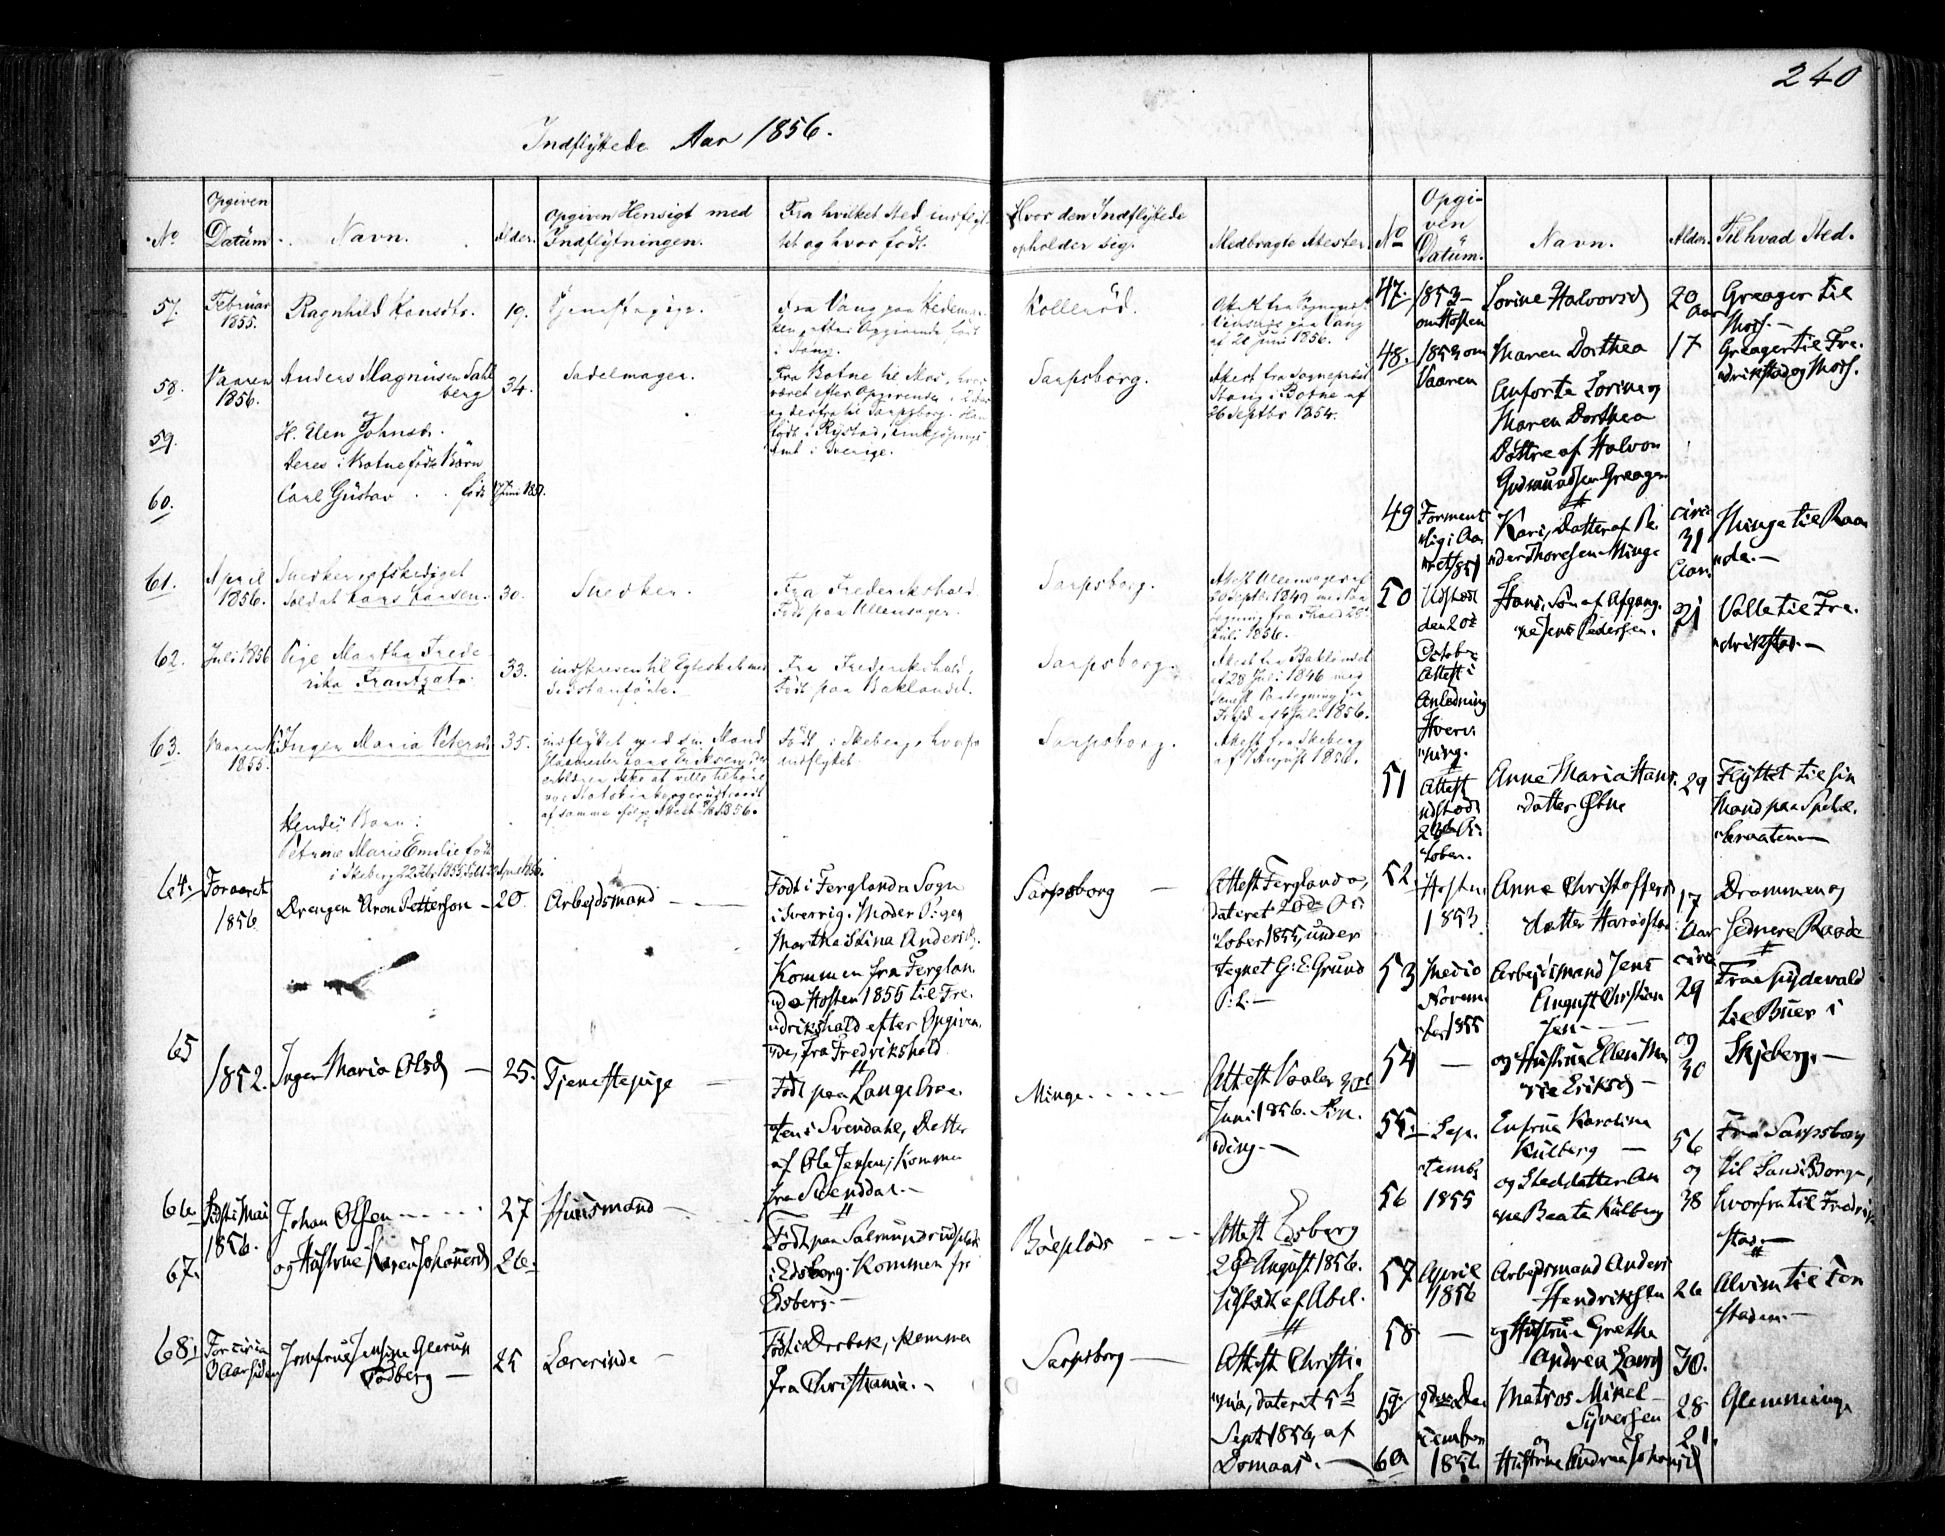 240
Indflyttede Aar 1856.
No
Opgiven Datum.
Navn.
Alder.
Opgiven Hensigt med Indflytningen.
Fra hvilket Sted indflyt-
tet og hvor født.
Hvor den Indflyttede
opholder sig.
Medbragte Attester.
57.
Februar
1855.
Ragnhild Hansdtr.
19.
Tjenestepige.
Fra Vang paa Hedemar-
ken, efter Opgivende født
i Vang.
Kollerød.
Attest fra
Vang
af 21 Juni 1856.
58.
Vaaren
1856.
Anders Magnusen Sahl
berg
34.
Sadelmager.
Fra Botne til Mos, hvor
været efter Opgivende
og derfra til Sarpsborg.
født i Rystad, Linkjøpings
Amt i Sverige.
Sarpsborg.
Attest fra Sogneprest
Stang i Botne af
26 Septbr 1854.
59.
H. Elen Johnsdr.
Deres i Botne fødte Børn
60.
Carl Gustav . . født Juni 1851.
61.
April
1856.
Snedker afskediget
Soldat Lars Larsen.
30.
Snedker.
Fra Frederikshald.
Født paa Ullensager.
Sarpsborg.
Attest Ullensager af
20 Septbr 1849 med Paa
tegning fra Fhald 25
Juli 1856.
62.
Juli 1856
Pige Martha Frede
rika Frantzat.
33.
indskreven til Egteskab med
Fra Frederikshald,
Født paa Baklandet.
Sarpsborg.
Attest fra Baklandet
af 28 Juli 1846 med
senest Paategning fra
Fhld af Juli 1856.
63.
Vaaren
1855.
Inger Maria Petersd
35.
indflyttet med sin Mand
Lars Eriksen, der
erklærer ikke at ville tilhøre
Født i Skeberg, hvorfra
indflyttet.
Sarpsborg.
Attest fra Skeberg
af 1 August 1856.
Hendes Barn:
Petrine Marie Emilie født
i Skeberg 22 Feb 1855
64.
Foraaret
1856
Drengen Aron Petterson
20
Arbejdsmand
Født i Ferglanda Sogn
i Sverrig. Moder Pigen
Martha Stina Andersd.
Kommen fra Ferglan-
da Høsten 1855 til Fre-
drikshald efter Opgiven-
de, fra Fredrikshald
Sarpsborg
Attest Ferglanda,
dateret 20de Oc-
tober 1855, under
tegnet G: E: Grund
P: L:
65
1852.
Inger Maria Olsd
25.
Tjenestepige
Født paa Langebræ-
ten i Svendahl, Datter
af Ole Jensen; Kommen
fra Svenddal.
Minge
Attest Vaaler 30te
Juni 1856.
66
Sidst i Mai
1856.
Johan Olsen
27
Huusmand
Født paa
i Edsberg. Kommen fra
Edsberg.
Böeplads
Attest Edsberg
29de August 1856.
67.
og Hustrue Karen Johannesd
26.
68.
For circa
Aar siden
Jomfrue Jensine Glerup
Fodberg
25
Lærerinde
Født i Drøbak, kommen
fra Christiania.
Sarpsborg
Attest Christi-
ania, dateret 5te
Septb 1856, af
Domaas.
No
Opgi-
ven
Datum.
Navn.
Alder.
Til hvad Sted.
47.
1853
om Høsten
Lorine Halvorsd
20
Aar
Greager til
Moss.
48.
1853 om
Vaaren
Maren Dorthea
17
Greager til Fre-
drikstad og Moss.
Anførte Lorine og
Maren Dorthea
Døttre af Halvor
Gudmundsen Greager
49
Forment-
lig i Aa-
ret 1851
Kari, Datter af Pe-
der Thoresen Minge
circa
31
Aar
Minge til Raa-
de.
50
Udstædt
den 20de
October
Attest i
Anledning
Hverv-
ning.
Hans, Søn af Afgang-
ne Jens Pedersen.
21
Valle til Fre-
drikstad.
51
Attest
udstædt
October.
Anne Maria Hans-
datter Øbne
29
Flyttet til sin
Mand paa
52.
Høsten
1853.
Anne Christoffers
datter
17
Aar
Drammen og
sednere Raade
53
Medio
Novem-
ber 1855
Arbejdsmand Jens
August Christian
circa
29
Fra Spydevald
til Buer i
Skjeberg.
54
og Hustrue Ellen Ma-
rie Eriksd
og
30
55.
Sep-
temb
1855
Enfrue Karoline
Külberg
56
Fra Sarpsborg
til
hvorfra til Fredrik-
stad.
56
og Steddatter An-
ne Beata Külberg
og
38
57
April
1856
Arbejdsmand Anders
Hendriksen
26
Alvim til Ton
staden.
58
og Hustrue Grethe
Andrea Larsd
30.
59.
2den De-
cember
1856.
Matros Mikel
Syversen
28
Glemminge
60.
og
Hustrue Andrea Johannesd
21.